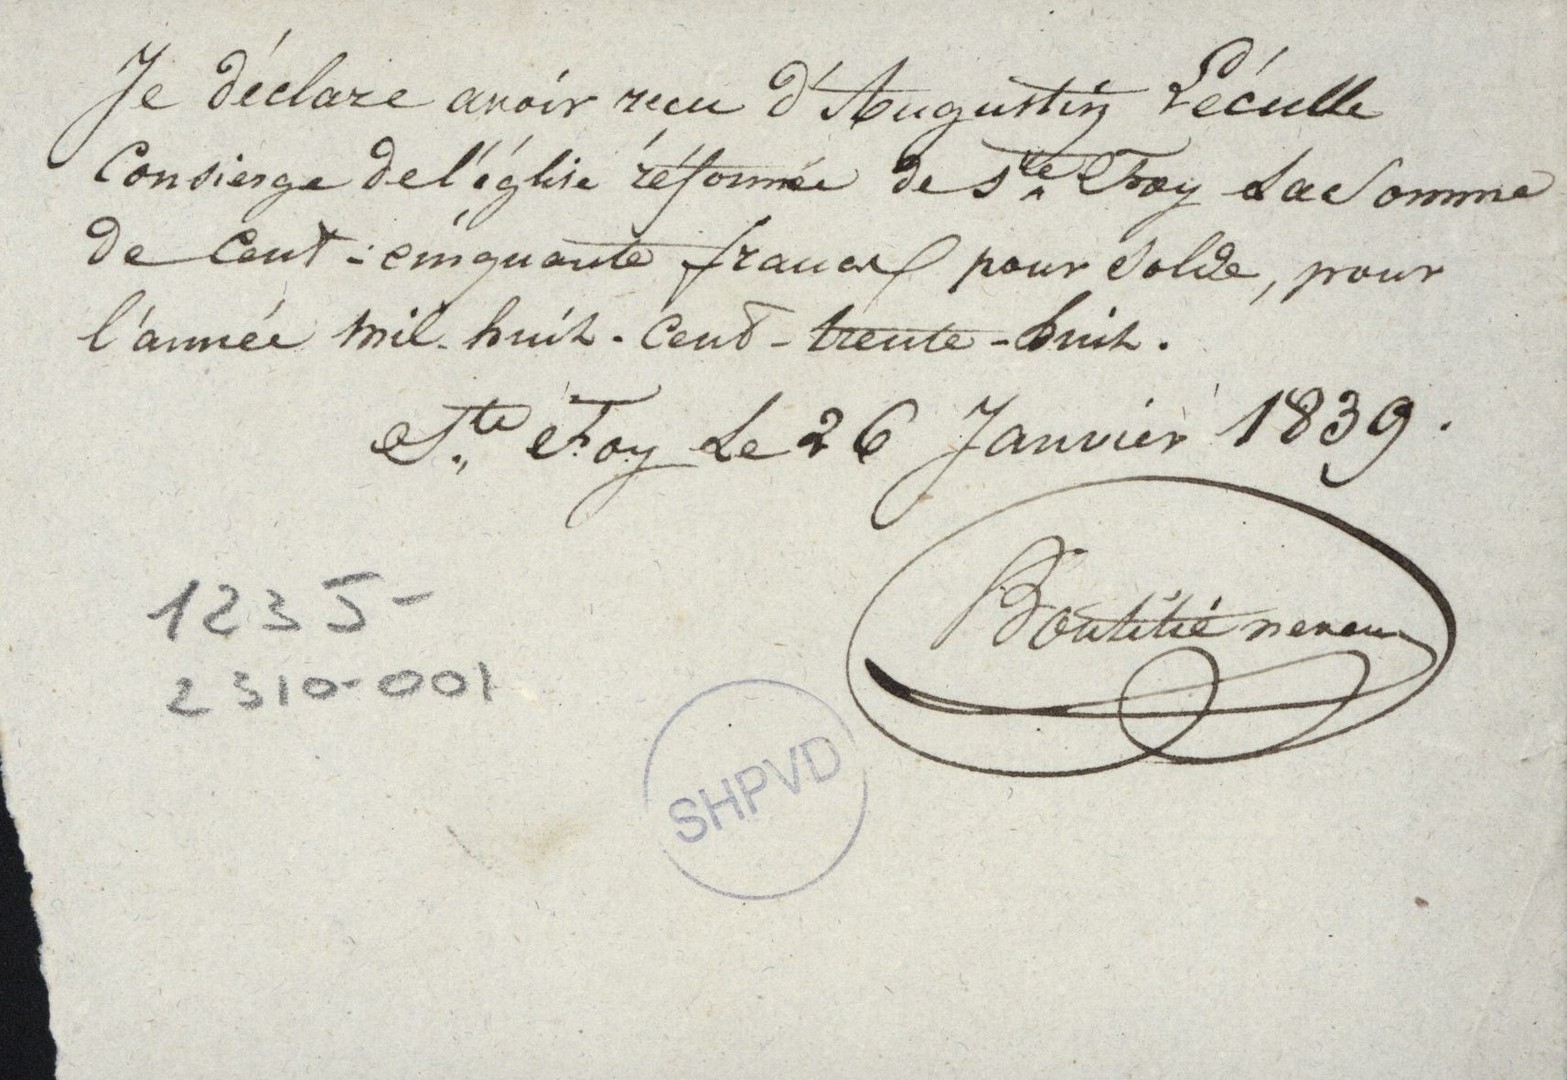 Je déclare avoir reçu d'Augustin Péculle
Consierge de l'église réformée de Ste Foy La Somme
de Cent-cinquante francs pour solde, pour
l'année mil-huit-cent-trente-huit.
Ste Foy Le 26 Janvier 1839.
Boutitié neveu
1235-
2310-001
SHPVD